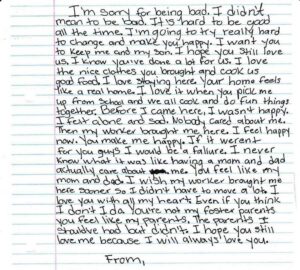 I'm sorry for being bad. I didn't
mean to be bad. It is hard to be good
all the time. I'm going to try really hard
to change and make you happy. I want you
to keep me and my son. I hope you still love
us. I know you've done a lot for us. I love
the nice clothes you brought and cook us
good food. I love staying here. Your home feels
like a real home. I love it when you pick me
up from school and we all cook and do fun things
together. Before I came here, I wasn't happy.
I felt alone and sad. Nobody cared about me.
Then my worker brought me here. I feel happy
now. You make me happy. If it weren't
for you guys I would be a failure. I never
knew what it was like having a mom and dad
actually care about me. You feel like my
mom and dad. I wish my worker brought me
here sooner so I didn't have to move a lot. I
love you with all my heart. Even if you think
I don't I do. You're not my foster parents
you feel like my parents. The parents I
should've had but didn't. I hope you still
love me because I will always love you.
From,